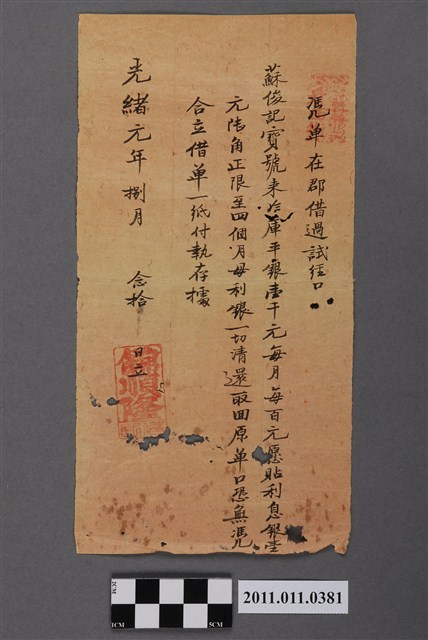 憑单在郡借過試經口
蘇俊記寶號来冷庫平銀壹千元每月每百元愿貼利息銀壹
元陆角正限至四個月母利銀一切清還取回原单口恐無憑
合立借单一紙付執存據
光緒元年捌月 念拾 日立
順隆
1CM
5CM
2011.011.0381